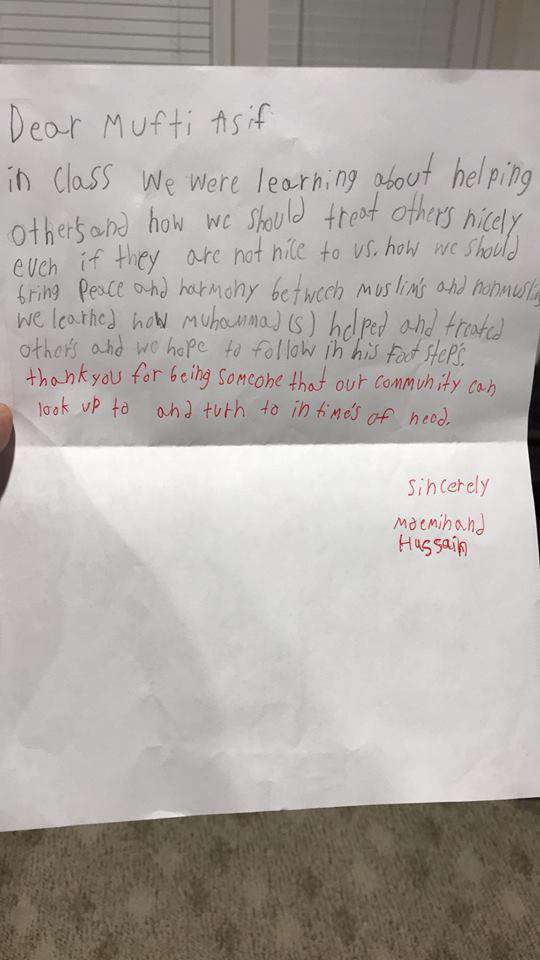 Dear Mufti Asif
in class we were learning about helping
others and how we should treat others nicely
even if they are not nice to us. how we should
bring Peace and harmony between muslim's and nonmuslim
we learned how muhammad (s) helped and treated
others and we hope to follow in his foot steps.
thank you for being someone that our community can
look up to and turn to in time's of need.
Sincerely
and
Hussain